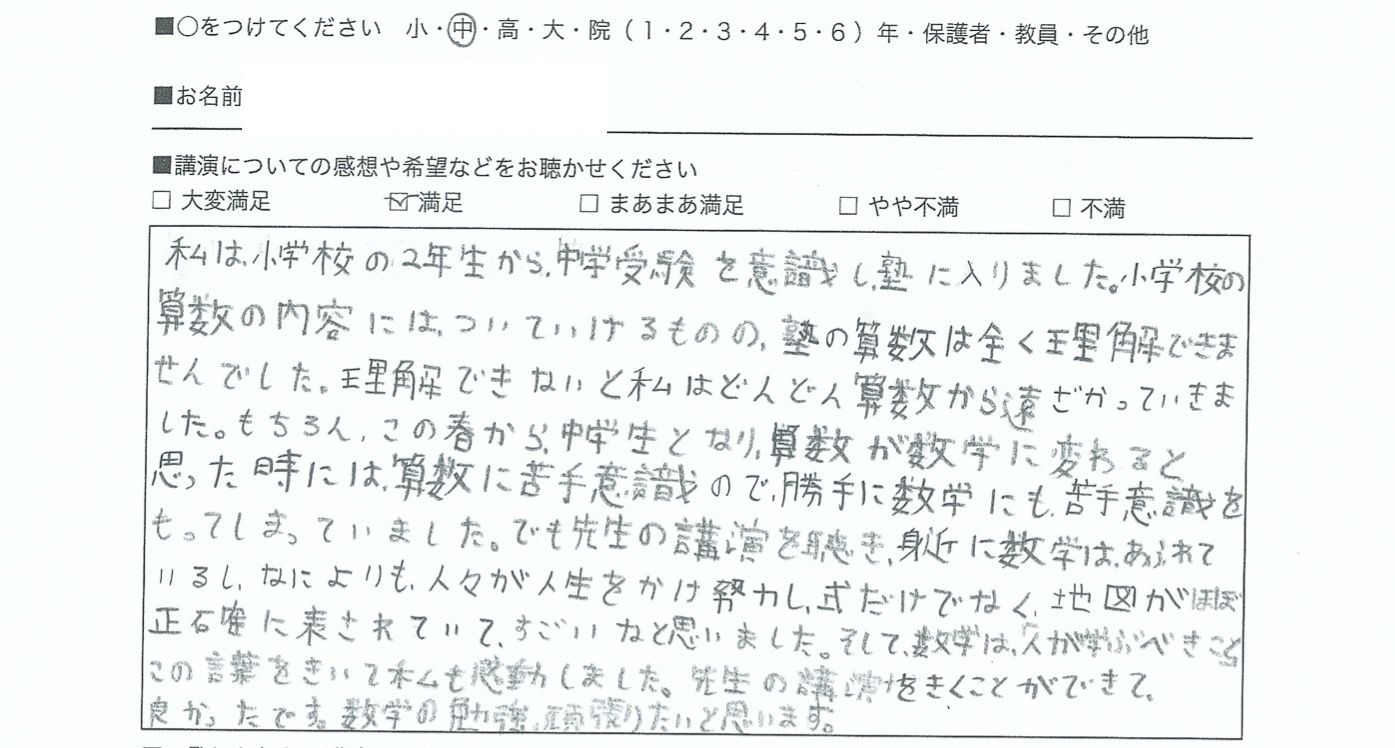 ■○をつけてください 小・中・高・大・院(1・2・3・4・5・6)年・保護者・教員・その他
■お名前
■講演についての感想や希望などをお聴かせください
□ 大変満足 ☑ 満足 □ まあまあ満足 □ やや不満 □ 不満
私は、小学校の2年生から、中学受験を意識し、塾に入りました。小学校の
算数の内容には、ついていけるものの、塾の算数は全く理解できま
せんでした。理解できないと私はどんどん算数から遠ざかっていきま
した。もちろん、この春から、中学生となり、算数が数学に変わると
思った時には、算数に苦手意識ので、勝手に数学にも、苦手意識を
もってしまっていました。でも先生の講演を聴き、身近に数学は、あふれて
いるし、なによりも、人々が人生をかけ努力し、式だけでなく、地図がほぼ
正確に表されていて、すごいなと思いました。そして、数学は、「人が学ぶべきこと」
この言葉をきいて私も感動しました。先生の講演をきくことができて、
良かったです。数学の勉強、頑張りたいと思います。